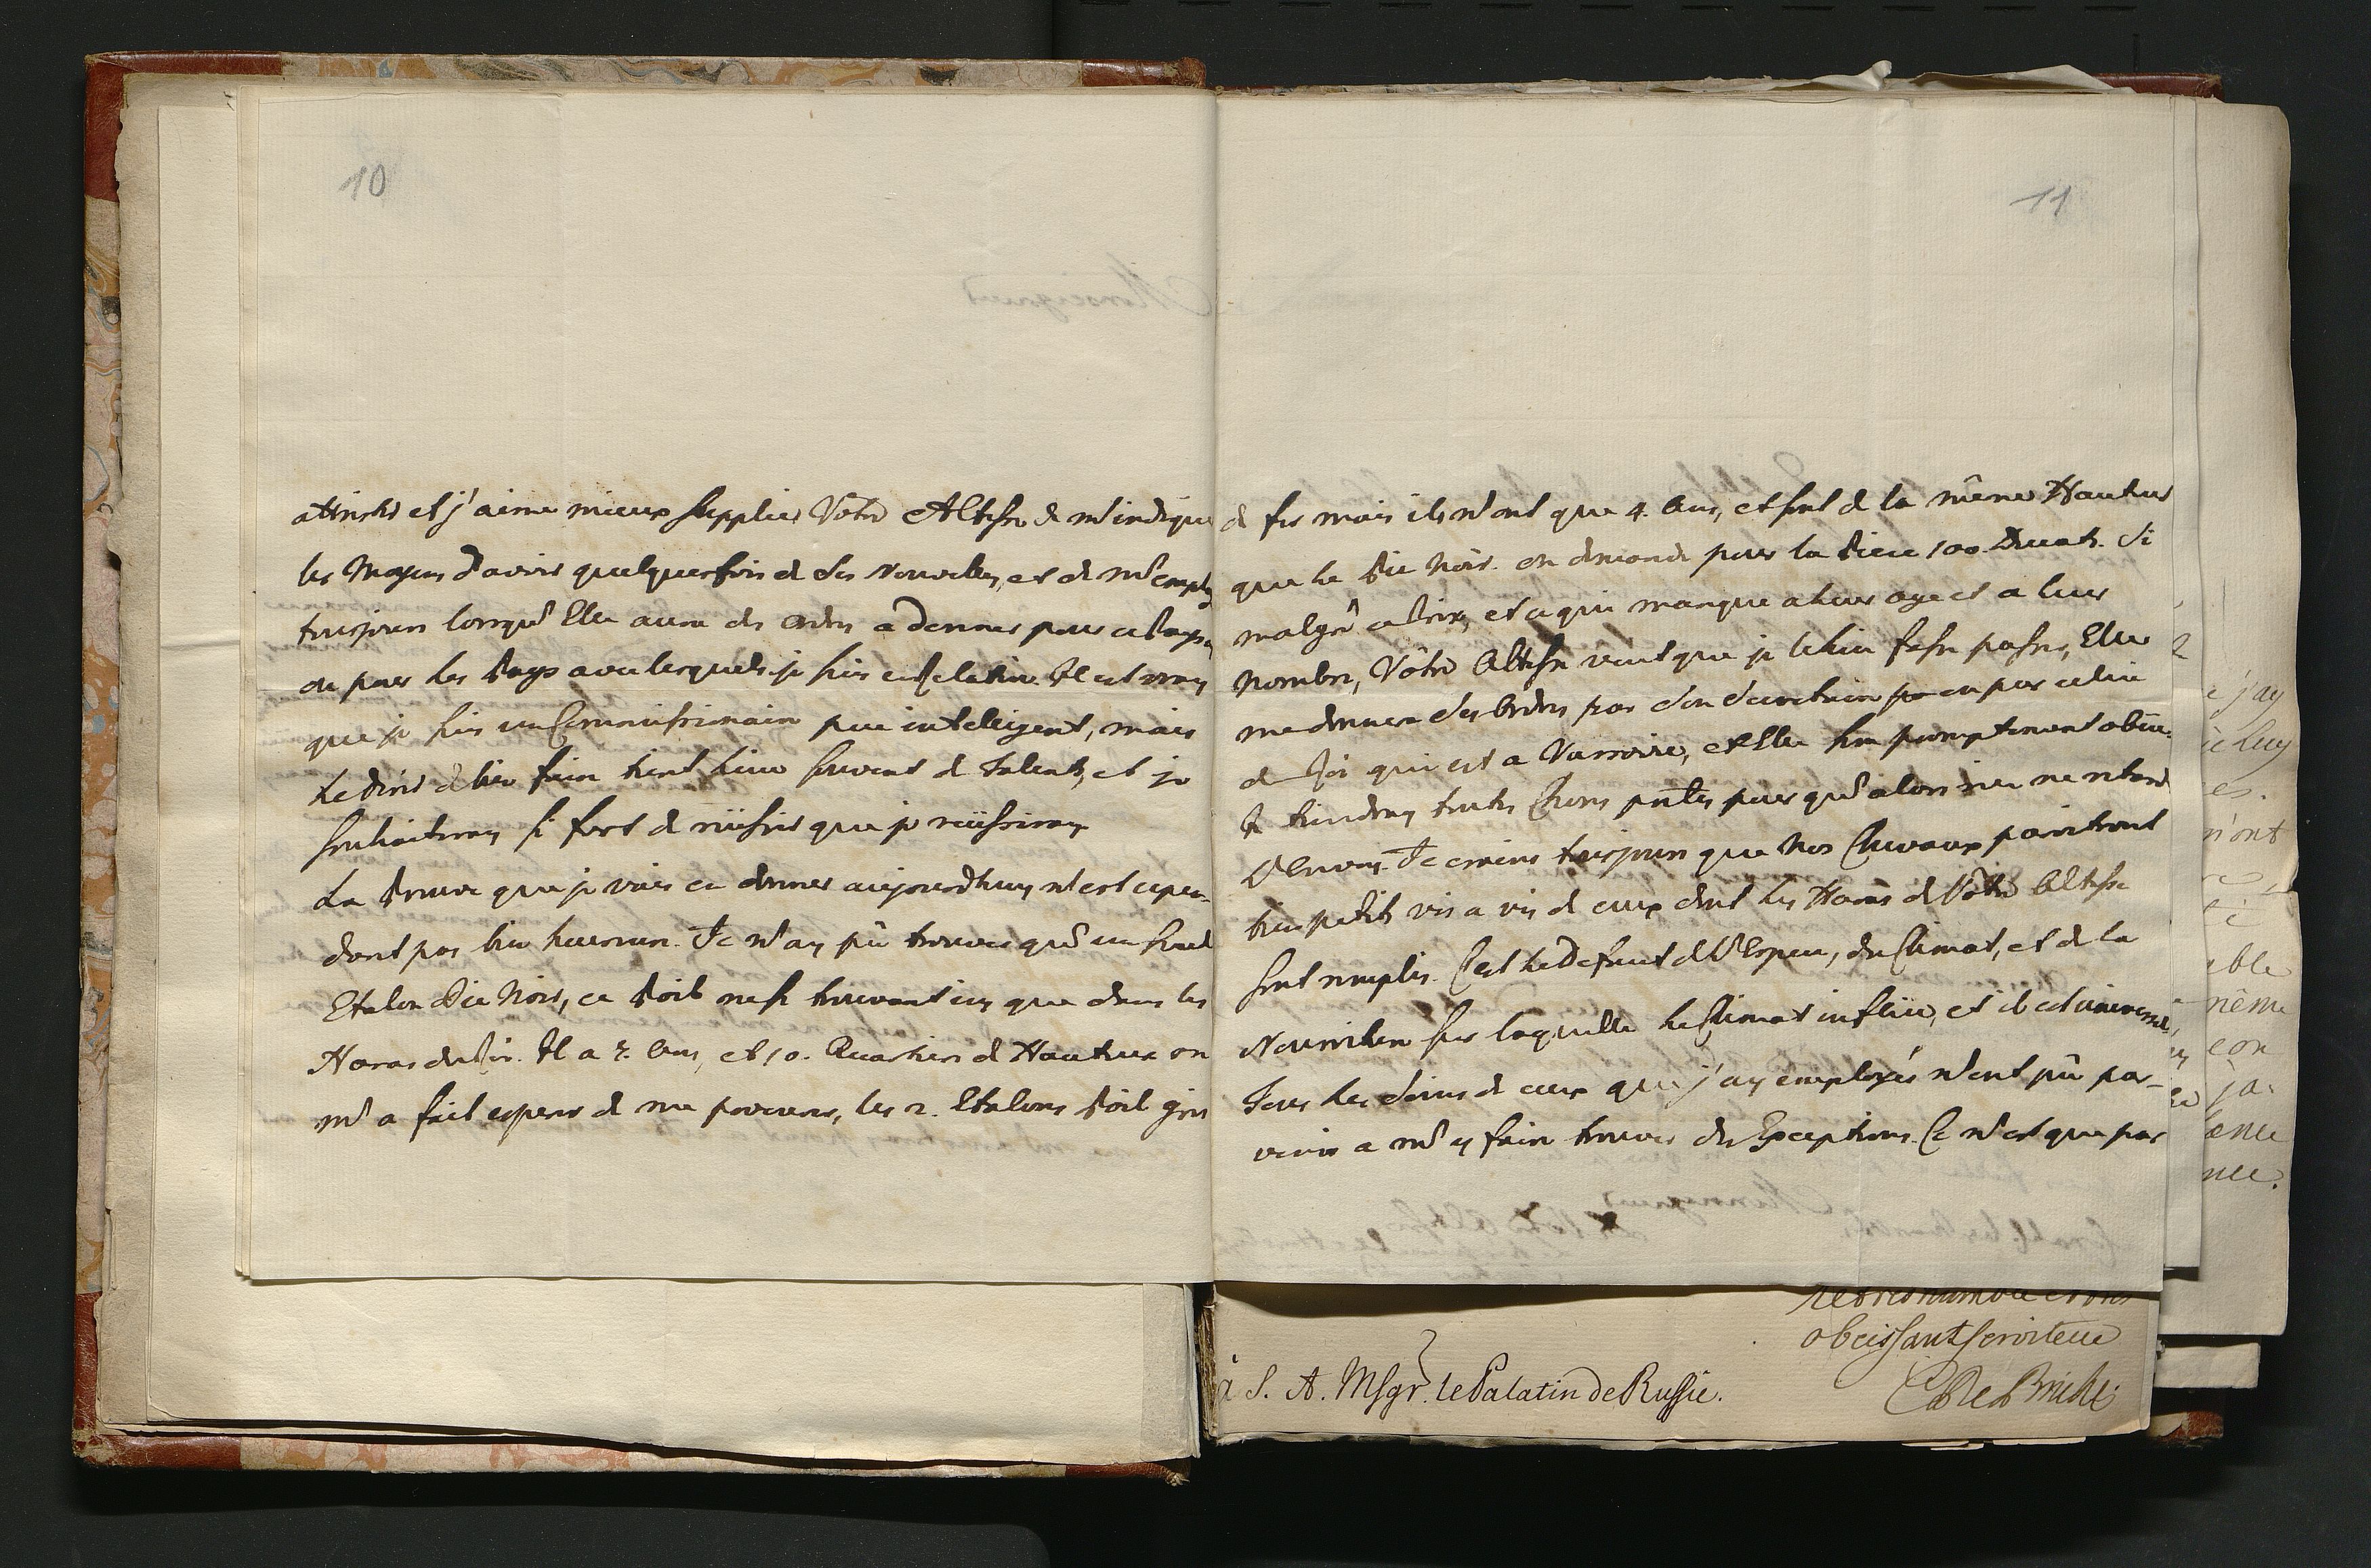 10
atteinte et j'aime mieux supplier Vôtre Altesse de m'indiquer
les Moyens d'avoir quelquesfois de ses Nouvelles, et de m'emploÿ
tousjours lorsqu'Elle aura des Ordres a donner pour ce Pays
ou pour les Pays avec lesquels je suis en Relation. Il est vray
que je suis un Commissionaire peu intelligent, mais
le Desir de bien faire tient lieu souvent de Talents, et je
souhaiteray si fort de reüssir que je reüssiray
La Preuve que je vais en donner aujourdhuy n'est cepen-
dant pas bien heureuse. Je n'ay pû trouver qu'un seul
Etalon Pie Noir, ce Poil ne se trouvant icy que dans les
Haras du Roi. Il a 7. Ans, et 10. Quartiers de Hauteur on
m'a fait esperer de me procurer, les 2. Etalons Poil gris
11
de fer mais ils n'ont que 4. Ans, et sont de la même Hauteur
que le Pie Noir. on demande pour la Piece 100. Ducats. Si
malgré ce Prix, et ce qui manque a leur age et a leur
Nombre, Vôtre Altesse veut que je le luy fasse passer, Elle
me donnera ses Ordres par son Secretaire ou par celui
du Roi qui est a Varsovie, et Elle sera promptement obeïe.
Je tiendray toutes Choses pretes pour qu'alors rien ne retarde
l'Envoy. Je crains tousjours que Nos Chevaux paroitront
bien petits vis a vis de ceux dont les Haras de Vôtre Altesse
sont remplis. C'est le Defaut de l'Espece, du Climat, et de la
Nourriture sur laquelle le Climat influe, et il est universel,
Tous les Soins de ceux que j'ay employés n'ont pû par-
venir a m'y faire trouver des Exceptions. Ce n'est que par
obeissant serviteur
à S. A. Msgr. le Palatin de Russie.
C de Brühl
j'ay
luy
es.
n'ont
able
même
con
ja-
ence
nce.